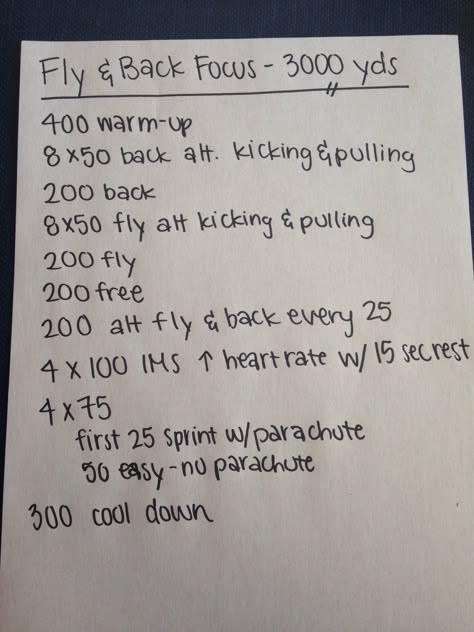 Fly & Back Focus - 3000 yds
400 warm-up
8x50 back alt. kicking & pulling
200 back
8x50 fly alt kicking & pulling
200 fly
200 free
200 alt fly & back every 25
4 x 100 IMS ↑ heart rate w/ 15 sec rest
4 x 75
first 25 sprint w/parachute
50 easy-no parachute
300 cool down